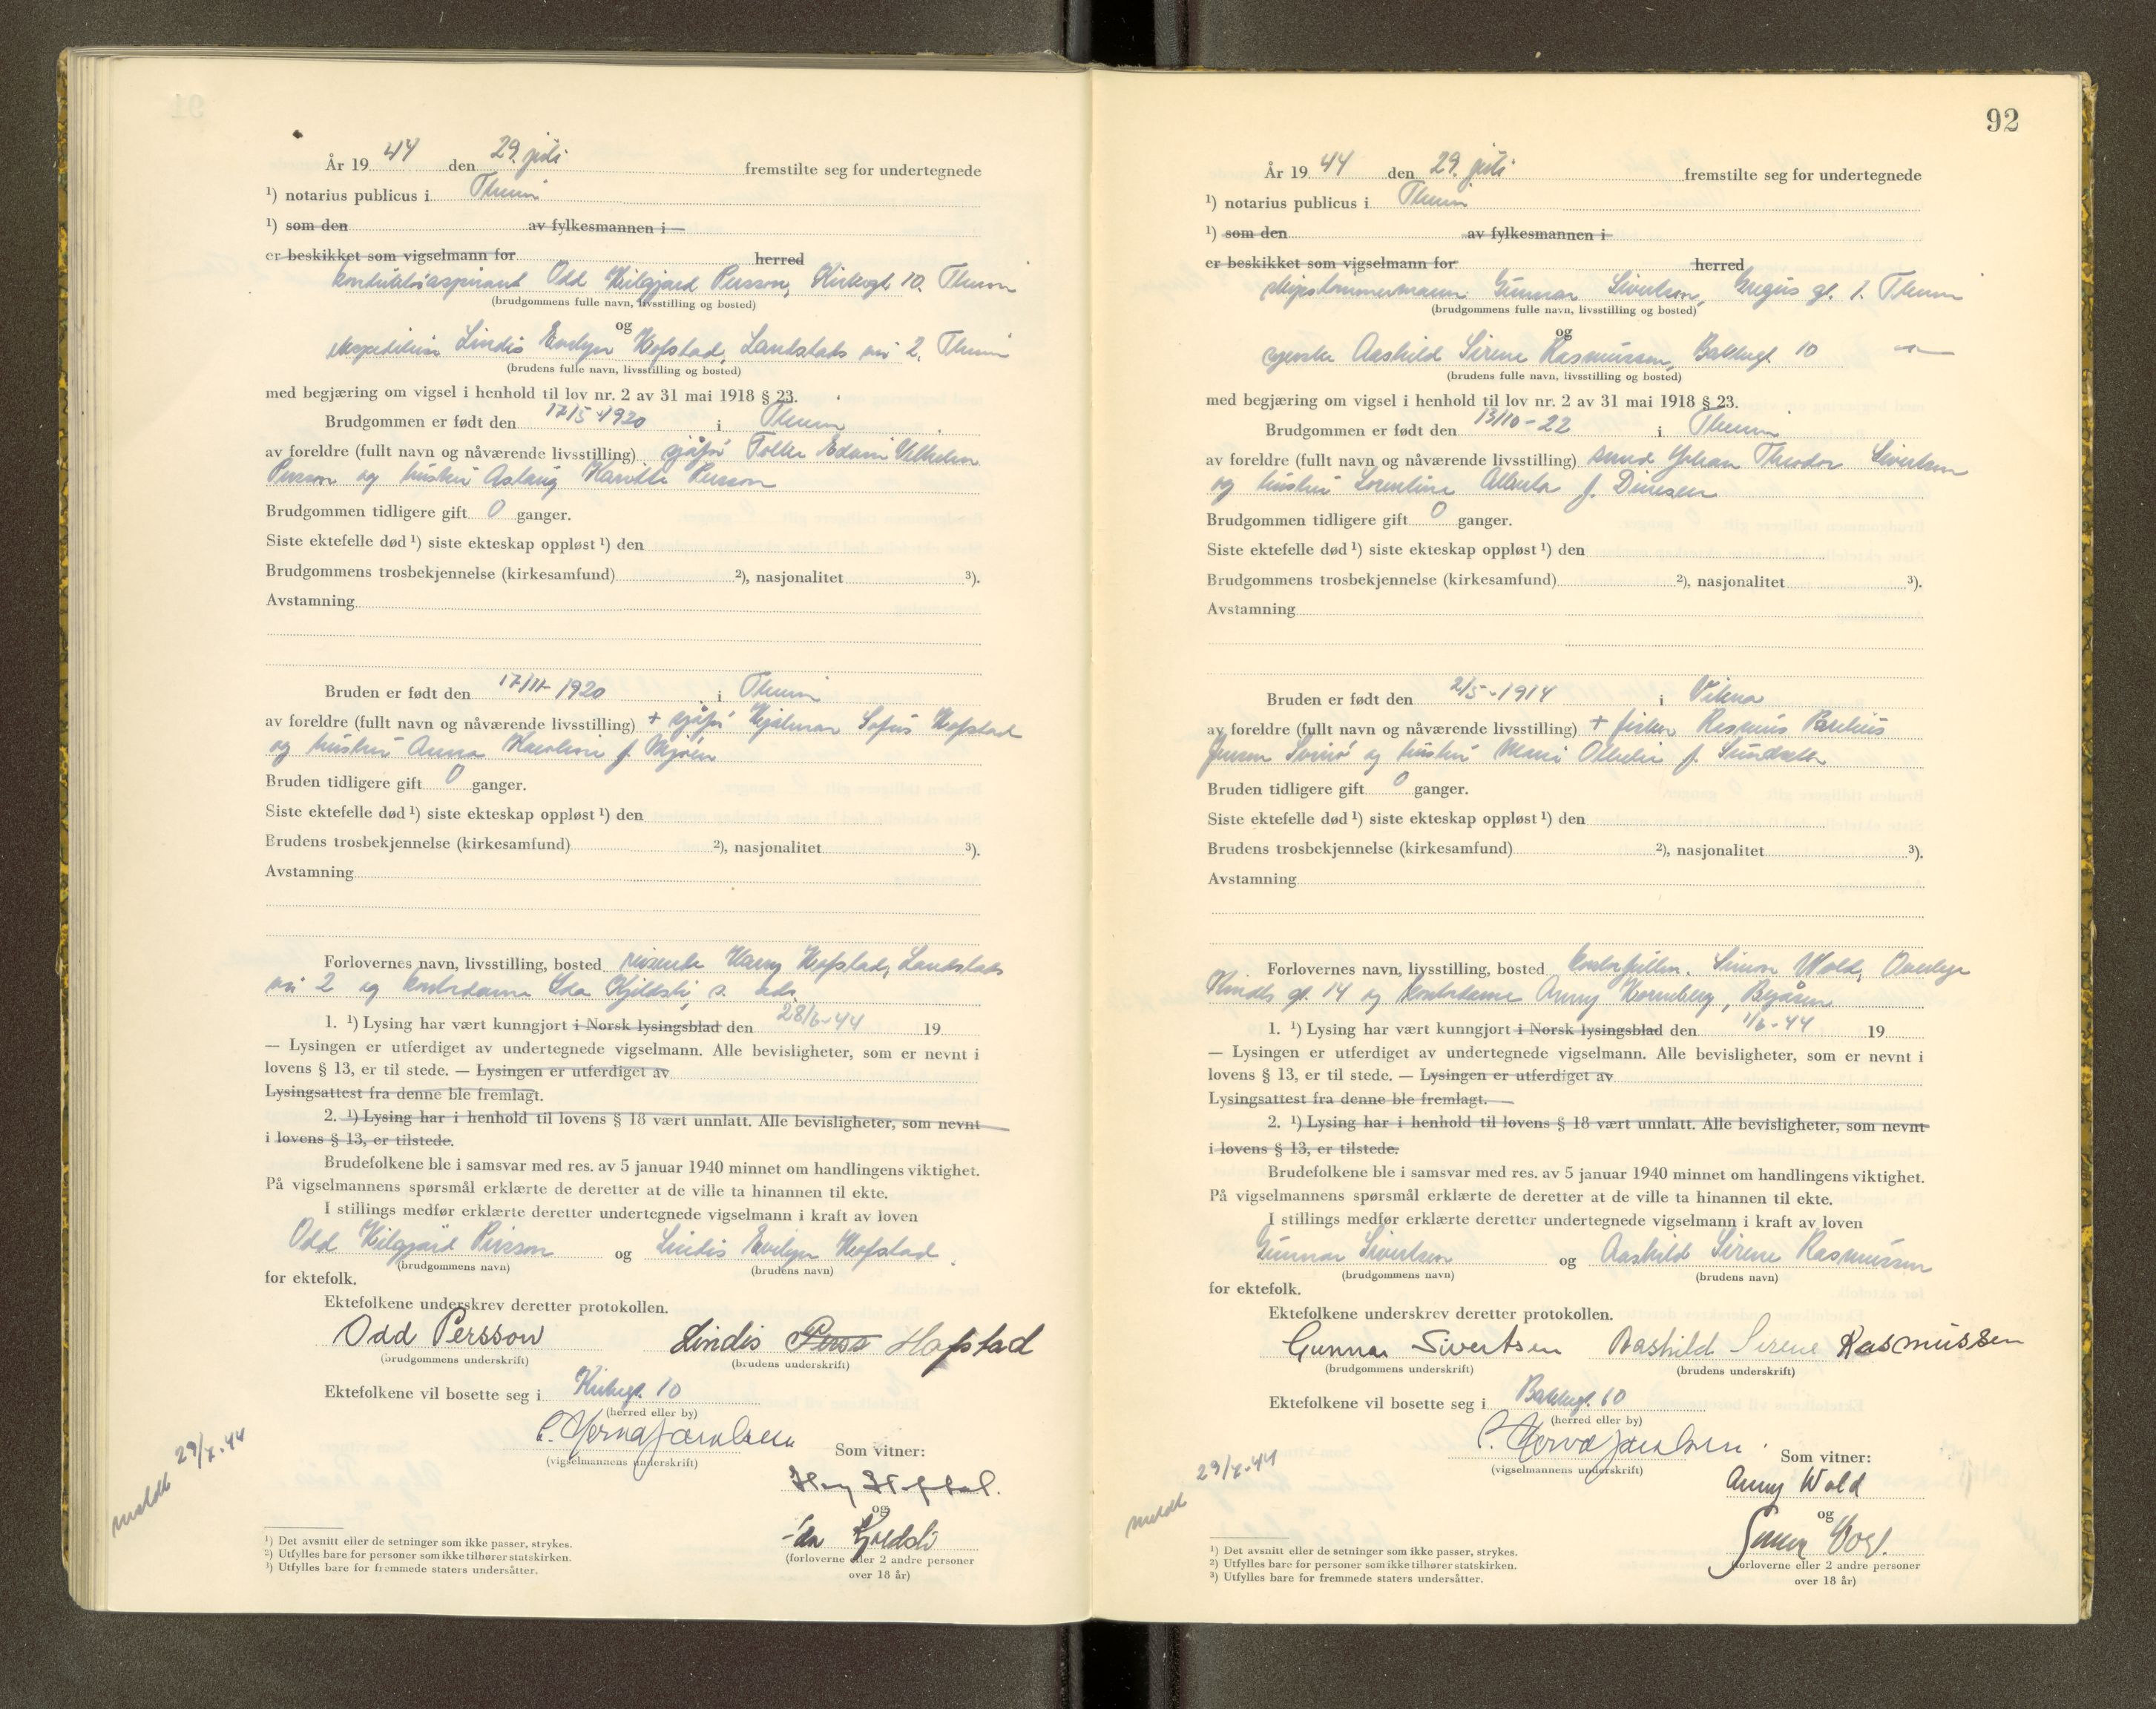 År 19 44 den 29. juli fremstilte seg for undertegnede
¹) notarius publicus i Thum
¹) som den av fylkesmannen i
er beskikket som vigselmann for herred
Odd Kilgjard Persson, Kirkegt 10. Thum
(brudgommens fulle navn, livsstilling og bosted)
og
Lindis Evelyn Hofstad, Landstads vei 2. Thum
(brudens fulle navn, livsstilling og bosted)
med begjæring om vigsel i henhold til lov nr. 2 av 31 mai 1918 § 23.
Brudgommen er født den 17/5-1920 i Thum
av foreldre (fullt navn og nåværende livsstilling) sjåfør Folke Edwin Vilhelm
Persson og hustru Aslaug Persson
Brudgommen tidligere gift 0 ganger.
Siste ektefelle død ¹) siste ekteskap oppløst ¹) den
Brudgommens trosbekjennelse (kirkesamfund) ²), nasjonalitet ³).
Avstamning
Bruden er født den 17/11-1920 i Thum
av foreldre (fullt navn og nåværende livsstilling) + sjåfør Hjalmar Sofus Hofstad
og hustru Anna Karoline f. Mjøen
Bruden tidligere gift 0 ganger.
Siste ektefelle død ¹) siste ekteskap oppløst ¹) den
Brudens trosbekjennelse (kirkesamfund) ²), nasjonalitet ³).
Avstamning
Forlovernes navn, livsstilling, bosted reisende Harry Hofstad, Landstads
vei 2 og kontordame Ida Kjeldsli, s. sds.
1. ¹) Lysing har vært kunngjort i Norsk lysingsblad den 28/6-44 19
— Lysingen er utferdiget av undertegnede vigselmann. Alle bevisligheter, som er nevnt i
lovens § 13, er til stede. — Lysingen er utferdiget av
Lysingsattest fra denne ble fremlagt.
2. ¹) Lysing har i henhold til lovens § 18 vært unnlatt. Alle bevisligheter, som nevnt
i lovens § 13, er tilstede.
Brudefolkene ble i samsvar med res. av 5 januar 1940 minnet om handlingens viktighet.
På vigselmannens spørsmål erklærte de deretter at de ville ta hinannen til ekte.
I stillings medfør erklærte deretter undertegnede vigselmann i kraft av loven
Odd Kilgjard Persson og Lindis Evelyn Hofstad
(brudgommens navn) (brudens navn)
for ektefolk.
Ektefolkene underskrev deretter protokollen.
Odd Persson Lindis Perss Hofstad
(brudgommens underskrift) (brudens underskrift)
Ektefolkene vil bosette seg i Kirkegt. 10
(herred eller by)
(vigselmannens underskrift) Som vitner:
meldt 29/7-44
og
Ida Kjeldsli
(forloverne eller 2 andre personer
over 18 år)
¹) Det avsnitt eller de setninger som ikke passer, strykes.
²) Utfylles bare for personer som ikke tilhører statskirken.
³) Utfylles bare for fremmede staters undersåtter.
92
År 19 44 den 29. juli fremstilte seg for undertegnede
¹) notarius publicus i Thum
¹) som den av fylkesmannen i
er beskikket som vigselmann for herred
skipstømmermann Gunnar Sivertsen, gt. 1. Thum
(brudgommens fulle navn, livsstilling og bosted)
og
Aashild Sirene Rasmussen, Bakkegt. 10 —"—
(brudens fulle navn, livsstilling og bosted)
med begjæring om vigsel i henhold til lov nr. 2 av 31 mai 1918 § 23.
Brudgommen er født den 13/10-22 i Thum
av foreldre (fullt navn og nåværende livsstilling) Johan Theodor Sivertsen
og hustru Lorentine Alberta f. Dinesen
Brudgommen tidligere gift 0 ganger.
Siste ektefelle død ¹) siste ekteskap oppløst ¹) den
Brudgommens trosbekjennelse (kirkesamfund) ²), nasjonalitet ³).
Avstamning
Bruden er født den 2/5-1914 i Vikna
av foreldre (fullt navn og nåværende livsstilling) + fisker Rasmus
Jensen og hustru f.
Bruden tidligere gift 0 ganger.
Siste ektefelle død ¹) siste ekteskap oppløst ¹) den
Brudens trosbekjennelse (kirkesamfund) ²), nasjonalitet ³).
Avstamning
Forlovernes navn, livsstilling, bosted Simon Wold,
gt. 14 og kontordame Anny Kornberg, Byåsen
1. ¹) Lysing har vært kunngjort i Norsk lysingsblad den 1/6-44 19
— Lysingen er utferdiget av undertegnede vigselmann. Alle bevisligheter, som er nevnt i
lovens § 13, er til stede. — Lysingen er utferdiget av
Lysingsattest fra denne ble fremlagt.
2. ¹) Lysing har i henhold til lovens § 18 vært unnlatt. Alle bevisligheter, som nevnt
i lovens § 13, er tilstede.
Brudefolkene ble i samsvar med res. av 5 januar 1940 minnet om handlingens viktighet.
På vigselmannens spørsmål erklærte de deretter at de ville ta hinannen til ekte.
I stillings medfør erklærte deretter undertegnede vigselmann i kraft av loven
Gunnar Sivertsen og Aashild Sirene Rasmussen
(brudgommens navn) (brudens navn)
for ektefolk.
Ektefolkene underskrev deretter protokollen.
Gunnar Sivertsen Aashild Sirene Rasmussen
(brudgommens underskrift) (brudens underskrift)
Ektefolkene vil bosette seg i Bakkegt. 10
(herred eller by)
(vigselmannens underskrift) Som vitner:
meldt 29/7-44
Anny Wold
og
Simon Wold
(forloverne eller 2 andre personer
over 18 år)
¹) Det avsnitt eller de setninger som ikke passer, strykes.
²) Utfylles bare for personer som ikke tilhører statskirken.
³) Utfylles bare for fremmede staters undersåtter.